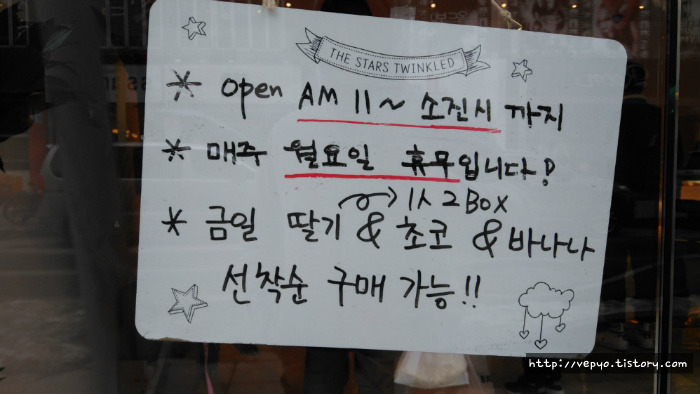 THE STARS TWINKLED
* Open AM 11 ~ 소진시 까지
* 매주 월요일 휴무입니다!
1人 2 BOX
* 금일 딸기 & 초코 & 바나나
선착순 구매 가능!!
http://vepyo.tistory.com